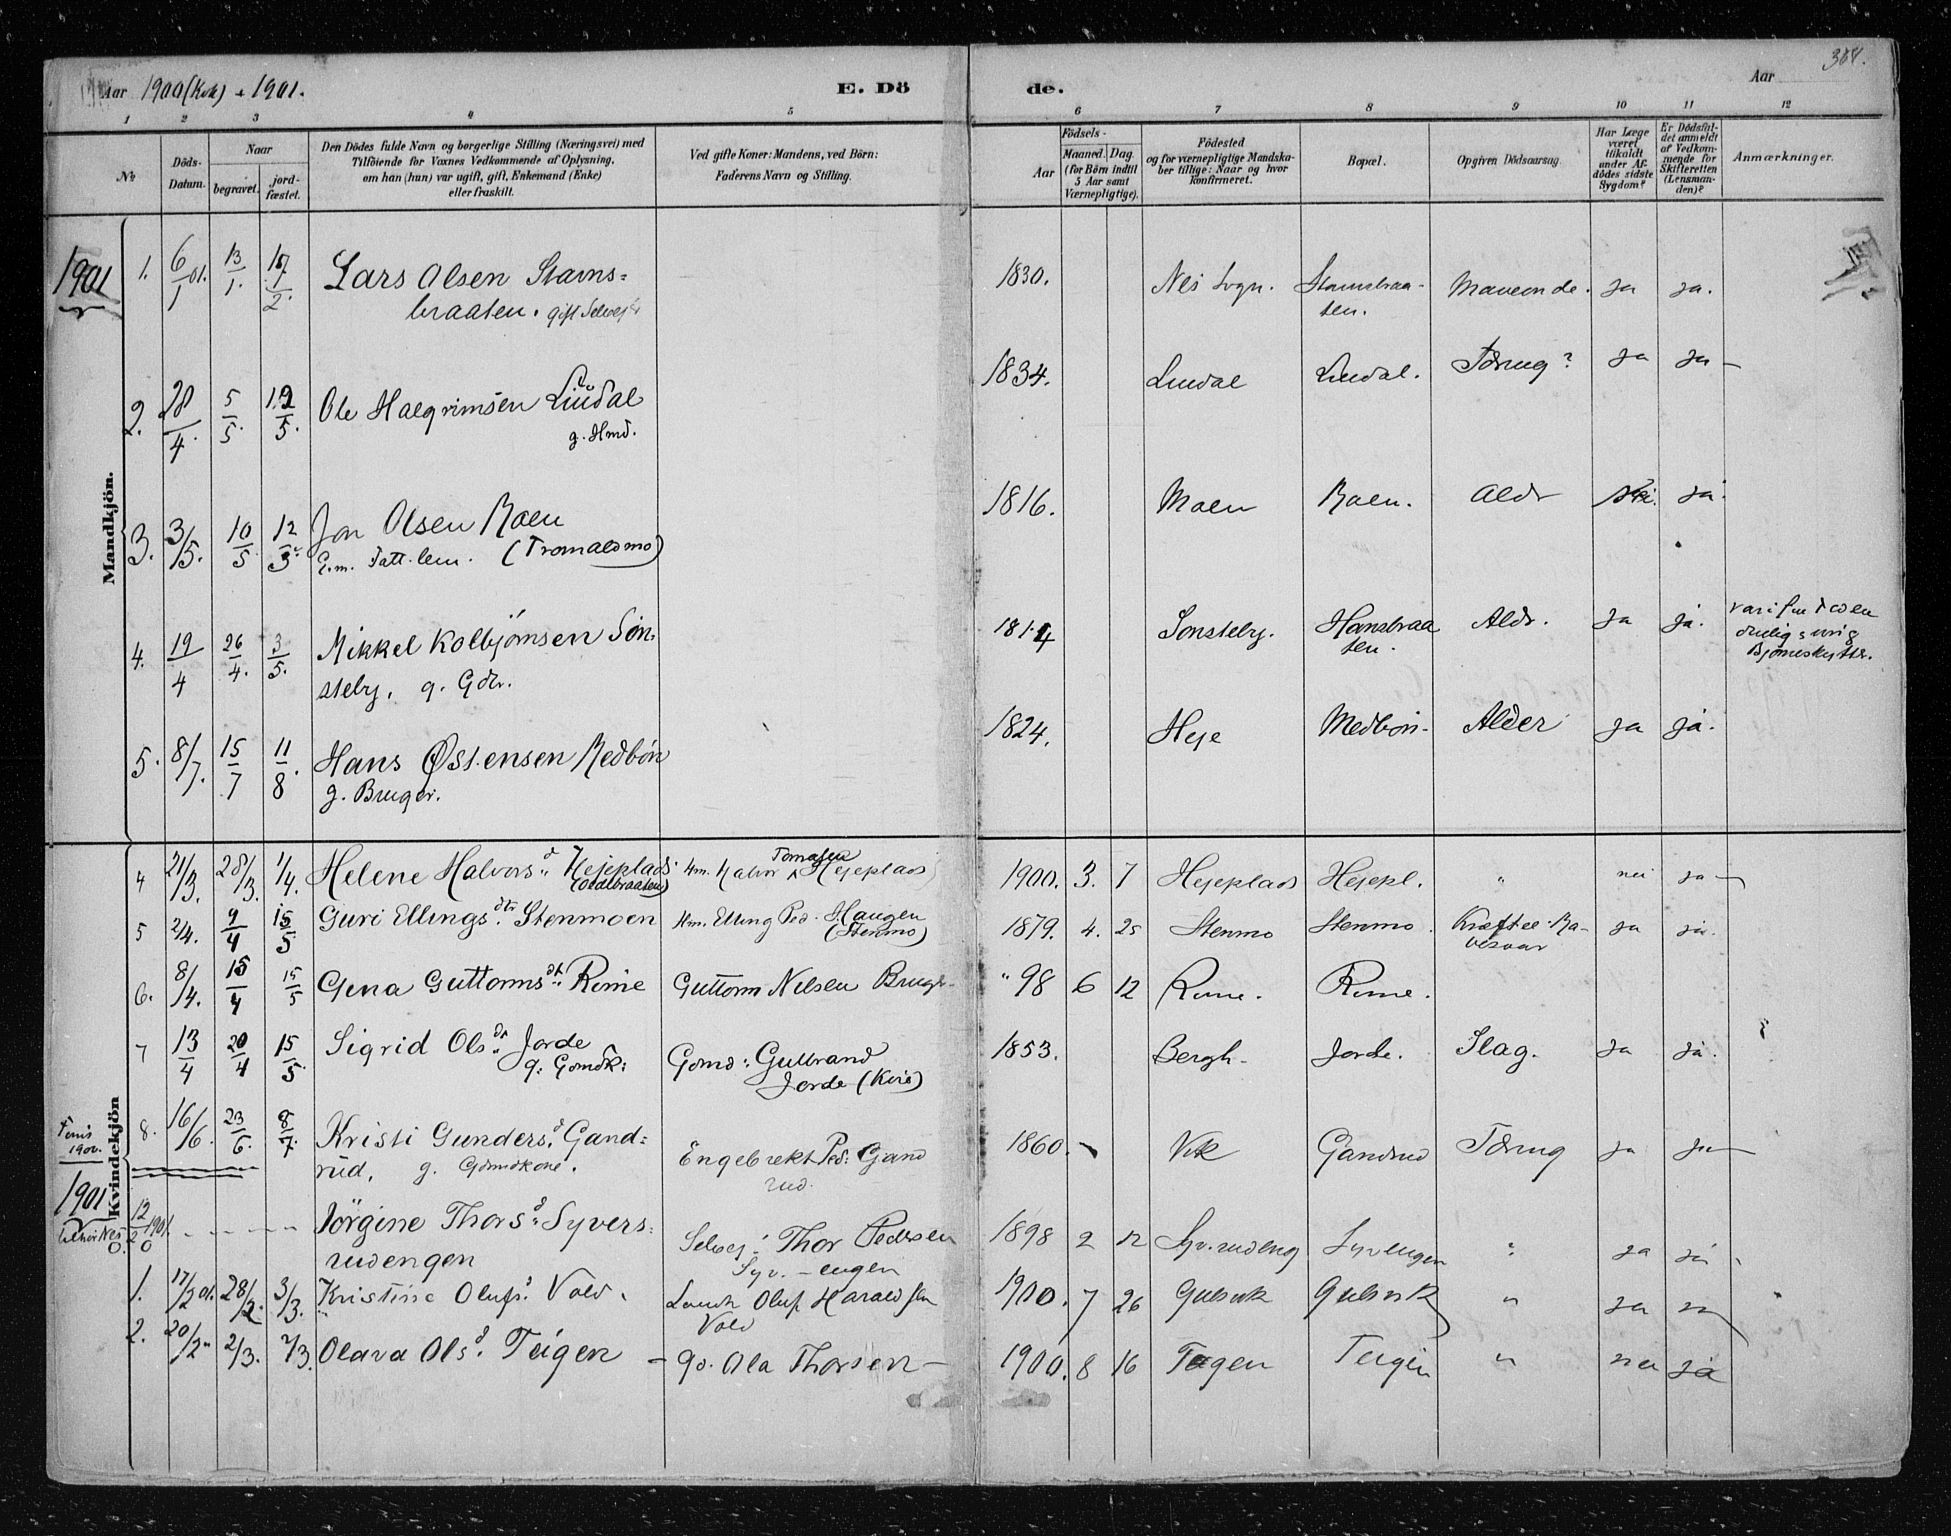 Aar 1900 (Kvk) + 1901.
E. Dö
de.
Aar
1 2 3 4 5 6 7 8 9 10 11 12
No
Döds-Datum.
Naar
begravet.
jord-fæstet.
Den Dödes fulde Navn og borgerlige Stilling (Næringsvei) med
Tilföiende for Voxnes Vedkommende af Oplysning,
om han (hun) var ugift, gift, Enkemand (Enke)
eller fraskilt.
Ved gifte Koner: Mandens, ved Börn:
Faderens Navn og Stilling.
Födsels-
Aar
Maaned. Dag.
(for Börn indtil
5 Aar samt
Værnepligtige).
Födested
og for værnepligtige Mandska-
ber tillige: Naar og hvor
konfirmeret.
Bopæl.
Opgiven Dödsaarsag.
Har Læge
været
tilkaldt
under Af-
dödes sidste
Sygdom?
Er Dödsfal-
det anmeldt
af Vedkom-
mende for
Skifteretten
(Lensman-
den)?
Anmærkninger.
Mandkjön.
1901
1. 6/1 01. 13/1. Lars Olsen Stavns= 1830. Nes Sogn. Stavnsbraa- Maveonde. ja ja.
braaten. gift Selvej ten.
2. 28/4. 5/5. 12/5. Ole Halgrimsen Liudal 1834. Liudal Liudal. Tæring? ja ja
g. Hmd.
3. 3/5. 10/5. 12/5 Jon Olsen Roen 1816. Moen Roen. Aldr ja.
E.m. Fatt. lem. (Tromaldmo)
4. 19/4 26/4. 3/5. Mikkel Kolbjörnsen Sön- 1814 Sönsteby. Hansbraa Aldr. ja ja.
steby. g. Gdbr. ten.
Bjørneskytter.
5. 8/7. 15/7 11/8. Hans Østensen Medbön 1824. Heje Medbön- Alder ja ja.
g. Bruger.
Kvindekjön
4 21/3. 28/3. 1/4. Helene Halvorsd. Hejeplads Hm. Halvor Tomasen Hejeplads 1900. 3. 7 Hejeplads Hejepl. " nei ja
5 2/4. 9/4 15/5 Guri Ellingsdtr Stenmoen Hm. Elling Ped. Haugen 1879. 4. 25 Stenmo Stenmo ja ja.
(Stenmo)
6. 8/4. 15/4 15/5 Gena Guttormsdt. Rime Guttorm Nilsen Brug " 98 6 12 Rime. Rime.
7 13/4 20/4 15/5 Sigrid Olsdr. Jorde Gdmd: Gulbrand 1853. Bergh- Jorde. Slag. ja ja.
g. Gdmdk: Jorde (Kvie)
8. 16/6. 23/6. 8/7. Kristi Gundersd. Gand= Engebrekt Ped. Gand 1860. Vik Gandrud Tæring ja ja
rud, g. Gdmdkone. rud.
1900.
1901
0. 12/2 1901. Jörgine Thorsd. Syvers= Selvej: Thor Pedersen 1898 2 12 Syv.rudeng Syvengen ja ja
rudengen Syv. - engen
1. 17/2 01. 28/2. 3/3. Kristine Olufsd. Vold. Oluf Haraldsen 1900. 7 26 Gulsvik Gulsvik " ja
Vold
2. 20/2 " 2/3. Olava Olsd. Teigen - Ola Thorsen - 1900. 8 16 Teigen Teigen " nei ja